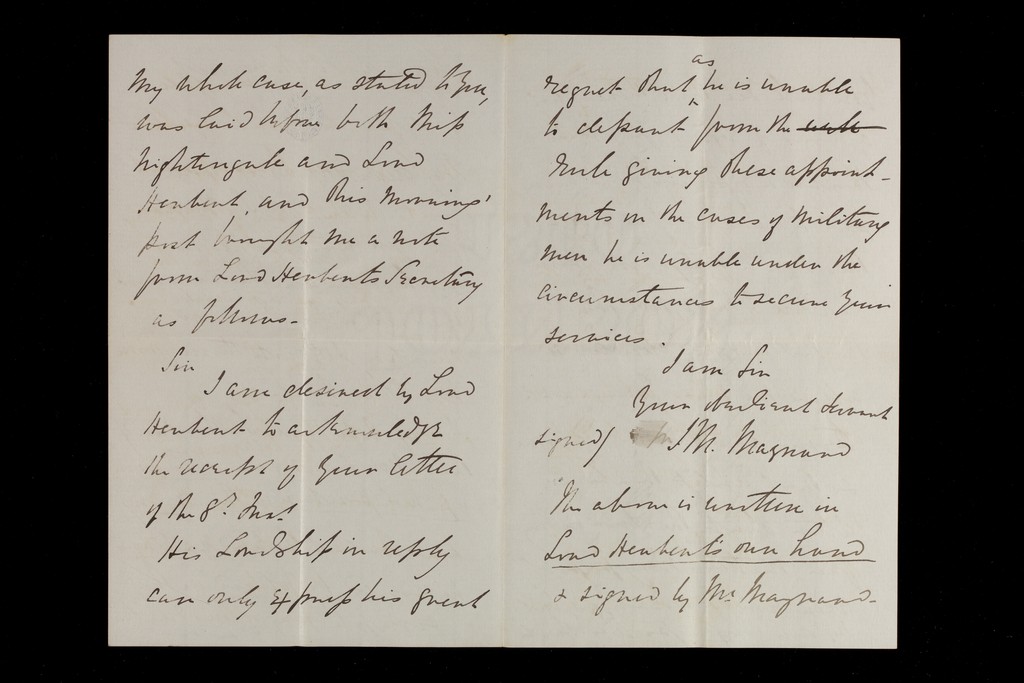 My whole case, as stated to you,
was laid before both Miss
Nightingale and Lord
Herbert, and this morning's
post brought me a note
from Lord Herbert's Secretary
as follows -
Sir
I am desired by Lord
Herbert to acknowledge
the receipt of your letter
of the 8th. Inst
His Lordship in reply
can only express his great
regret that as he is unable
to depart from the
rule giving these appoint-
ments in the cases of Military
men he is unable under the
circumstances to secure your
services.
I am Sir
Your obedient Servant
signed) M. Maynard
The above is written in
Lord Herbert's own hand
& signed by Mr Maynard -